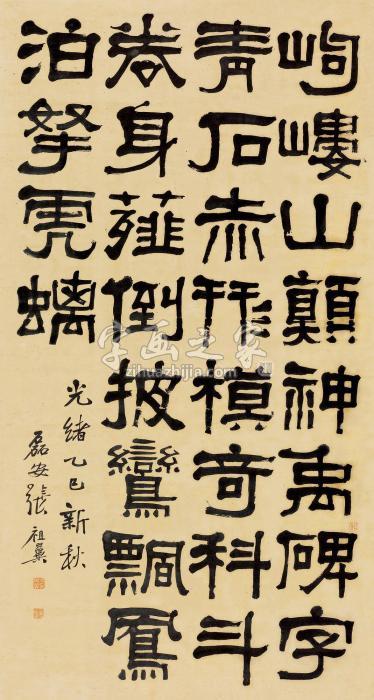 岣嶁山顛神禹碑字
青石赤形模奇科斗
拳身薤倒披鸞飄鳳
泊拏虎螭
光緒乙巳新秋
磊安張祖翼
字画之家
zihuazhijia.com